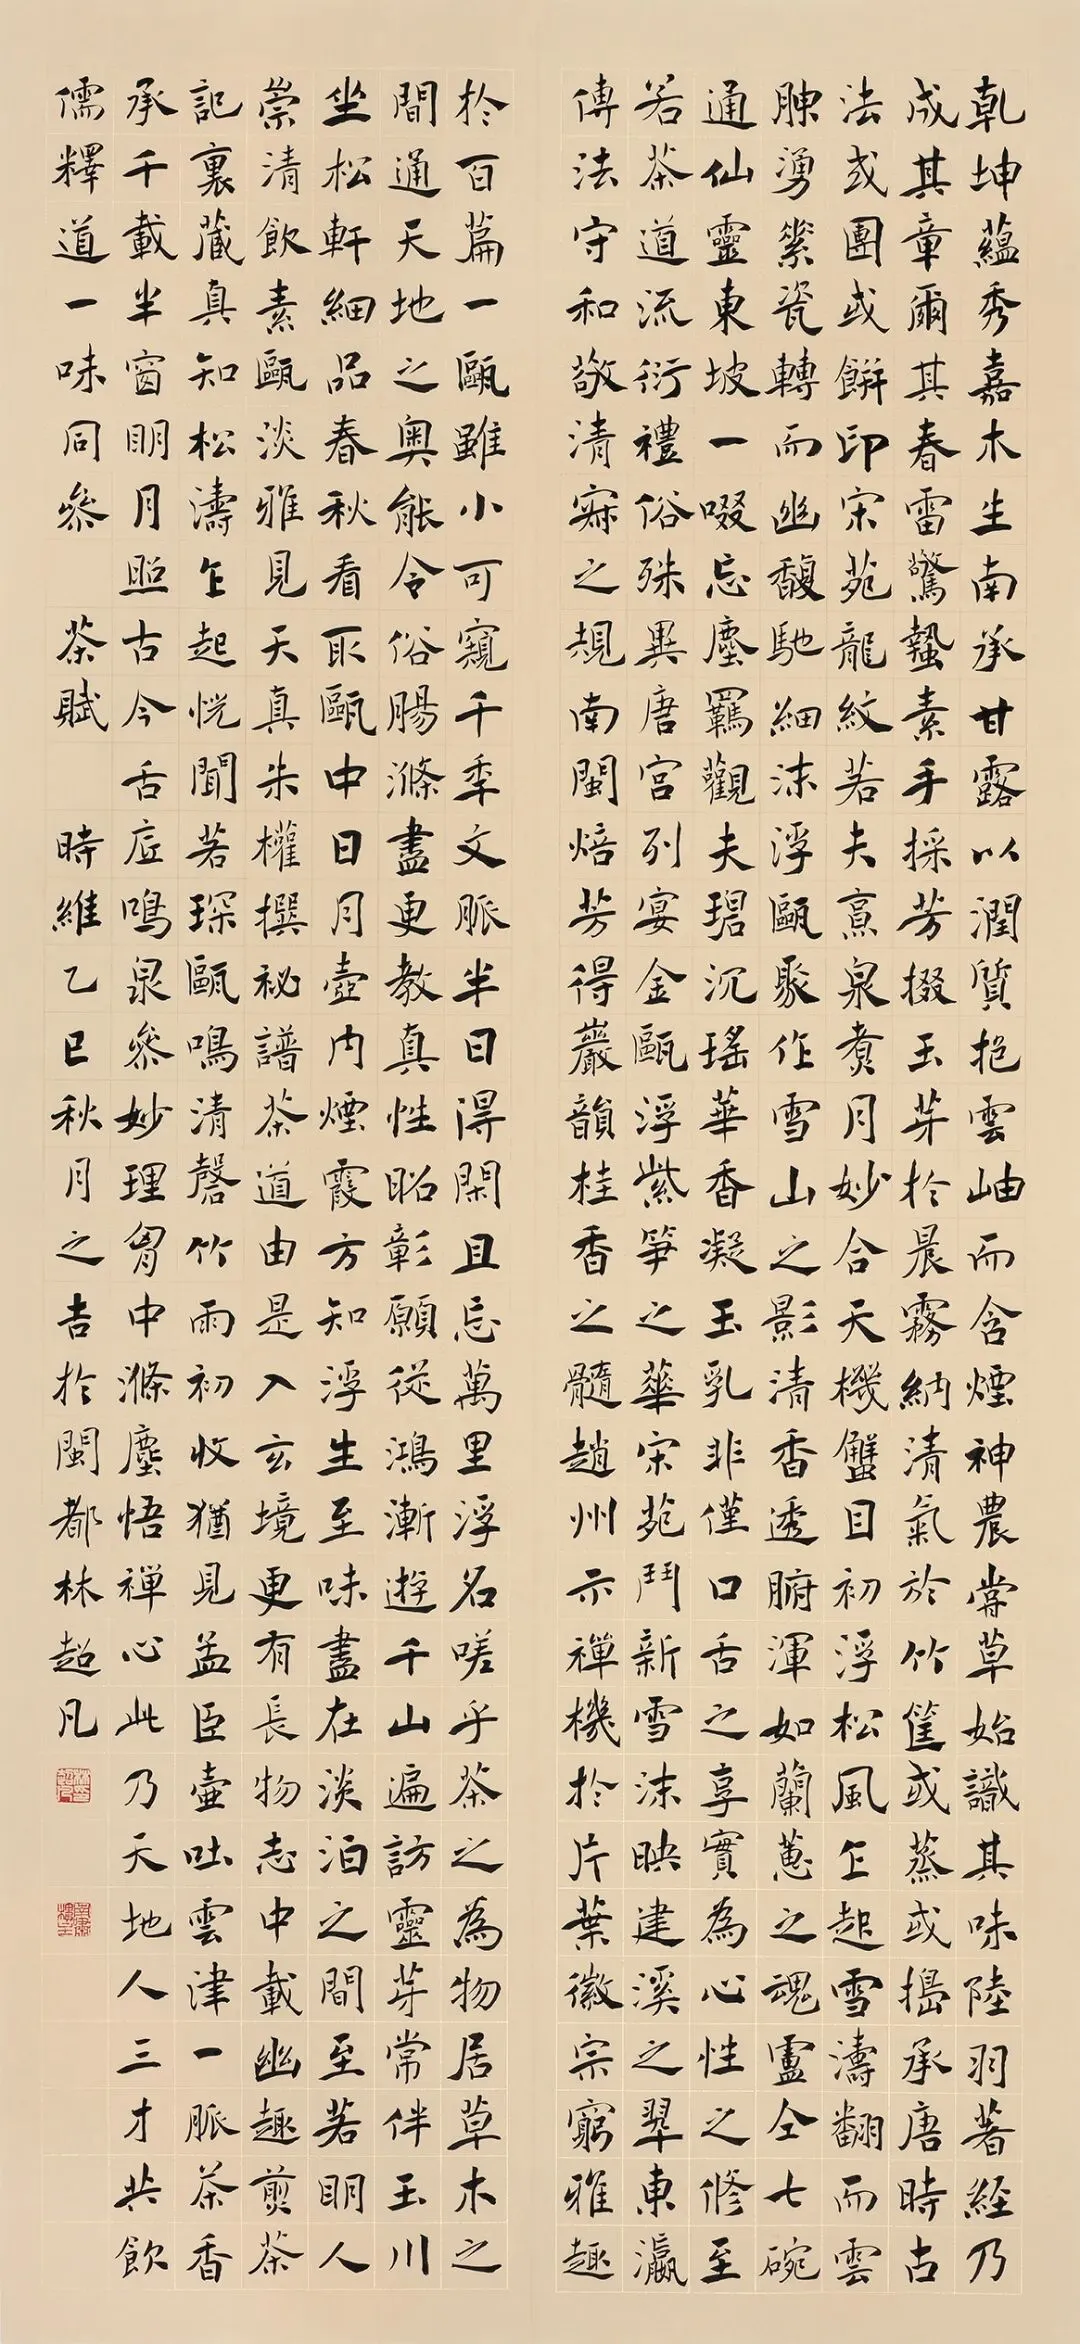 乾坤蘊秀嘉木生南承甘露以潤質挹雲岫而含煙神農嘗草始識其味陸羽著經乃
成其章爾其春雷驚蟄素手採芳掇玉芽於晨霧納清氣於竹筐或蒸或搗承唐時古
法或團或餅印宋苑龍紋若夫烹泉煮月妙合天機蟹目初浮松風乍起雪濤翻而雲
腴湧紫瓷轉而幽馥馳細沫浮甌聚作雪山之影清香透腑渾如蘭蕙之魂盧仝七碗
通仙靈東坡一啜忘塵羈觀夫沉瑤華香凝玉乳非僅口舌之享實為心性之修至
若茶道流衍禮俗殊異唐宮列宴金甌浮紫笋之華宋苑鬥新雪沫映建溪之翠東瀛
傳法守和敬清寂之規南閩焙芳得巖韻桂香之髓趙州示禪機於片葉徽宗窮雅趣
於百篇一甌雖小可窺千年文脈半日得閑且忘萬里浮名嗟乎茶之為物居草木之
間通天地之奧能令俗腸滌盡更教真性昭彰願從鴻漸遊千山遍訪靈芽常伴玉川
坐松軒細品春秋看取甌中日月壺內煙霞方知浮生至味盡在淡泊之間至若明人
崇清飲素甌淡雅見天真朱權撰祕譜茶道由是入玄境更有長物志中載幽趣煎茶
記裏藏真知松濤乍起恍聞若琛甌鳴清磬竹雨初收猶見孟臣壺吐雲津一脈茶香
承千載半窗明月照古今舌底鳴泉參妙理胸中滌塵悟禪心此乃天地人三才共飲
儒釋道一味同參 茶賦 時維乙巳秋月之吉於閩都林超凡